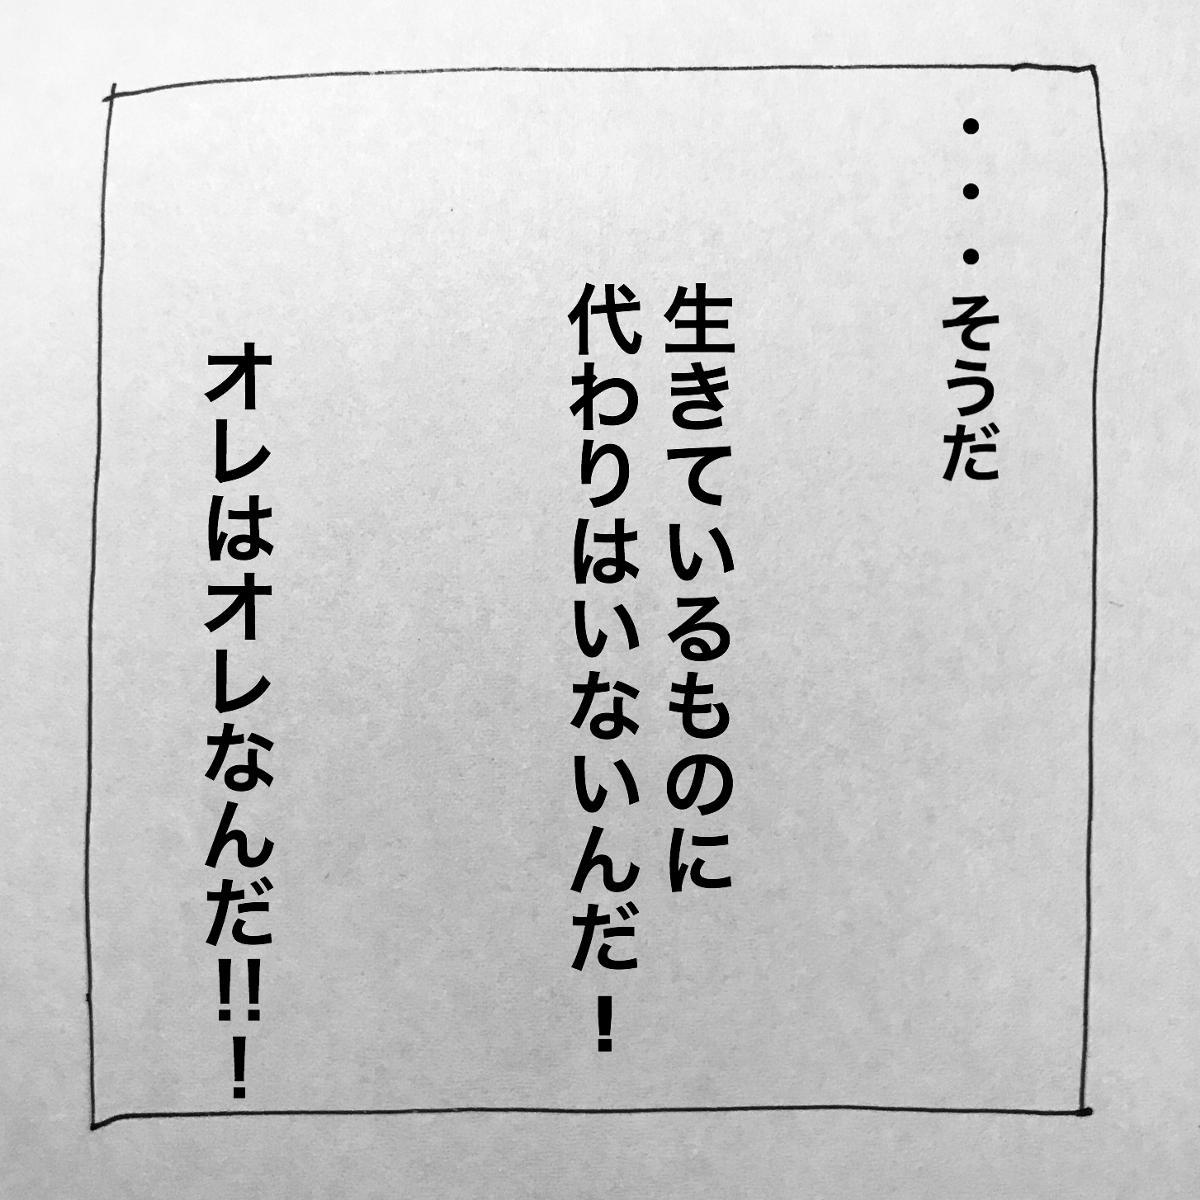 ・・・そうだ
生きているものに
代わりはいないんだ！
オレはオレなんだ‼！